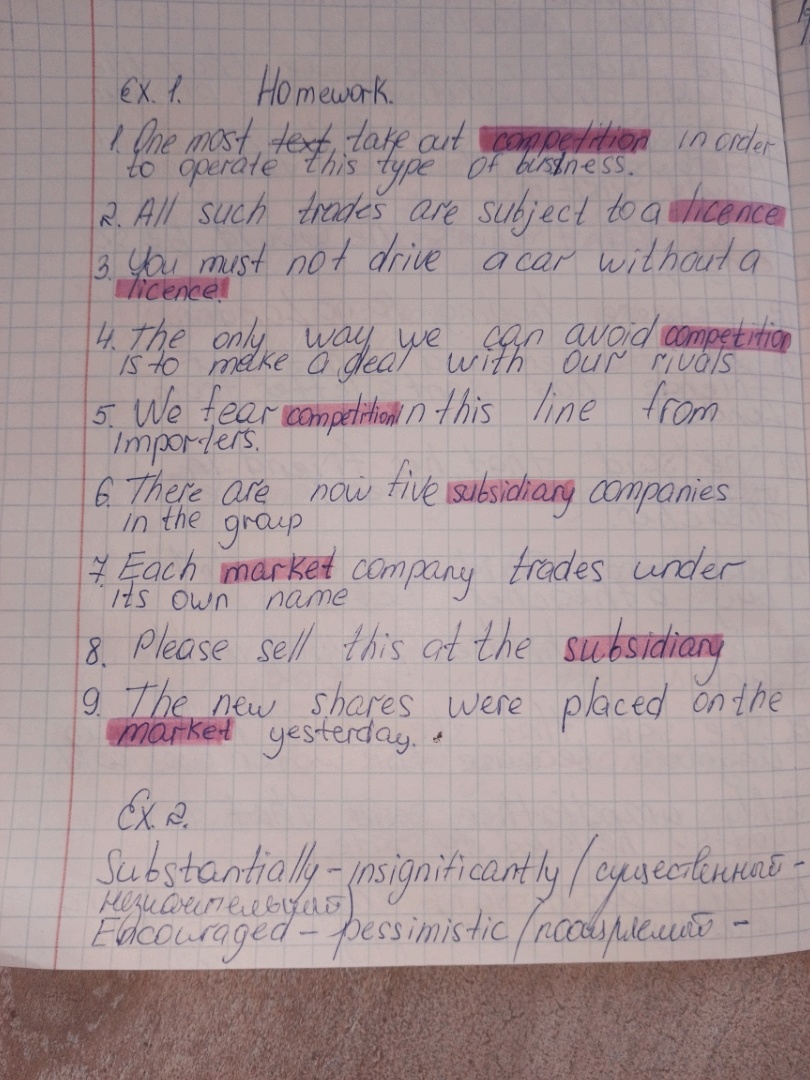 Ex. 1. Homework.
1. One most text take out competition in order
to operate this type of business.
2. All such trades are subject to a licence
3. You must not drive a car without a
licence!
4. The only way we can avoid competition
is to make a deal with our rivals
5. We fear competition in this line from
importers.
6. There are now five subsidiary companies
in the group
7. Each market company trades under
its own name
8. Please sell this at the subsidiary
9. The new shares were placed on the
market yesterday.
Ex. 2.
Substantially - insignificantly / существенный -
незначительный)
Encouraged - pessimistic / поощряемый -